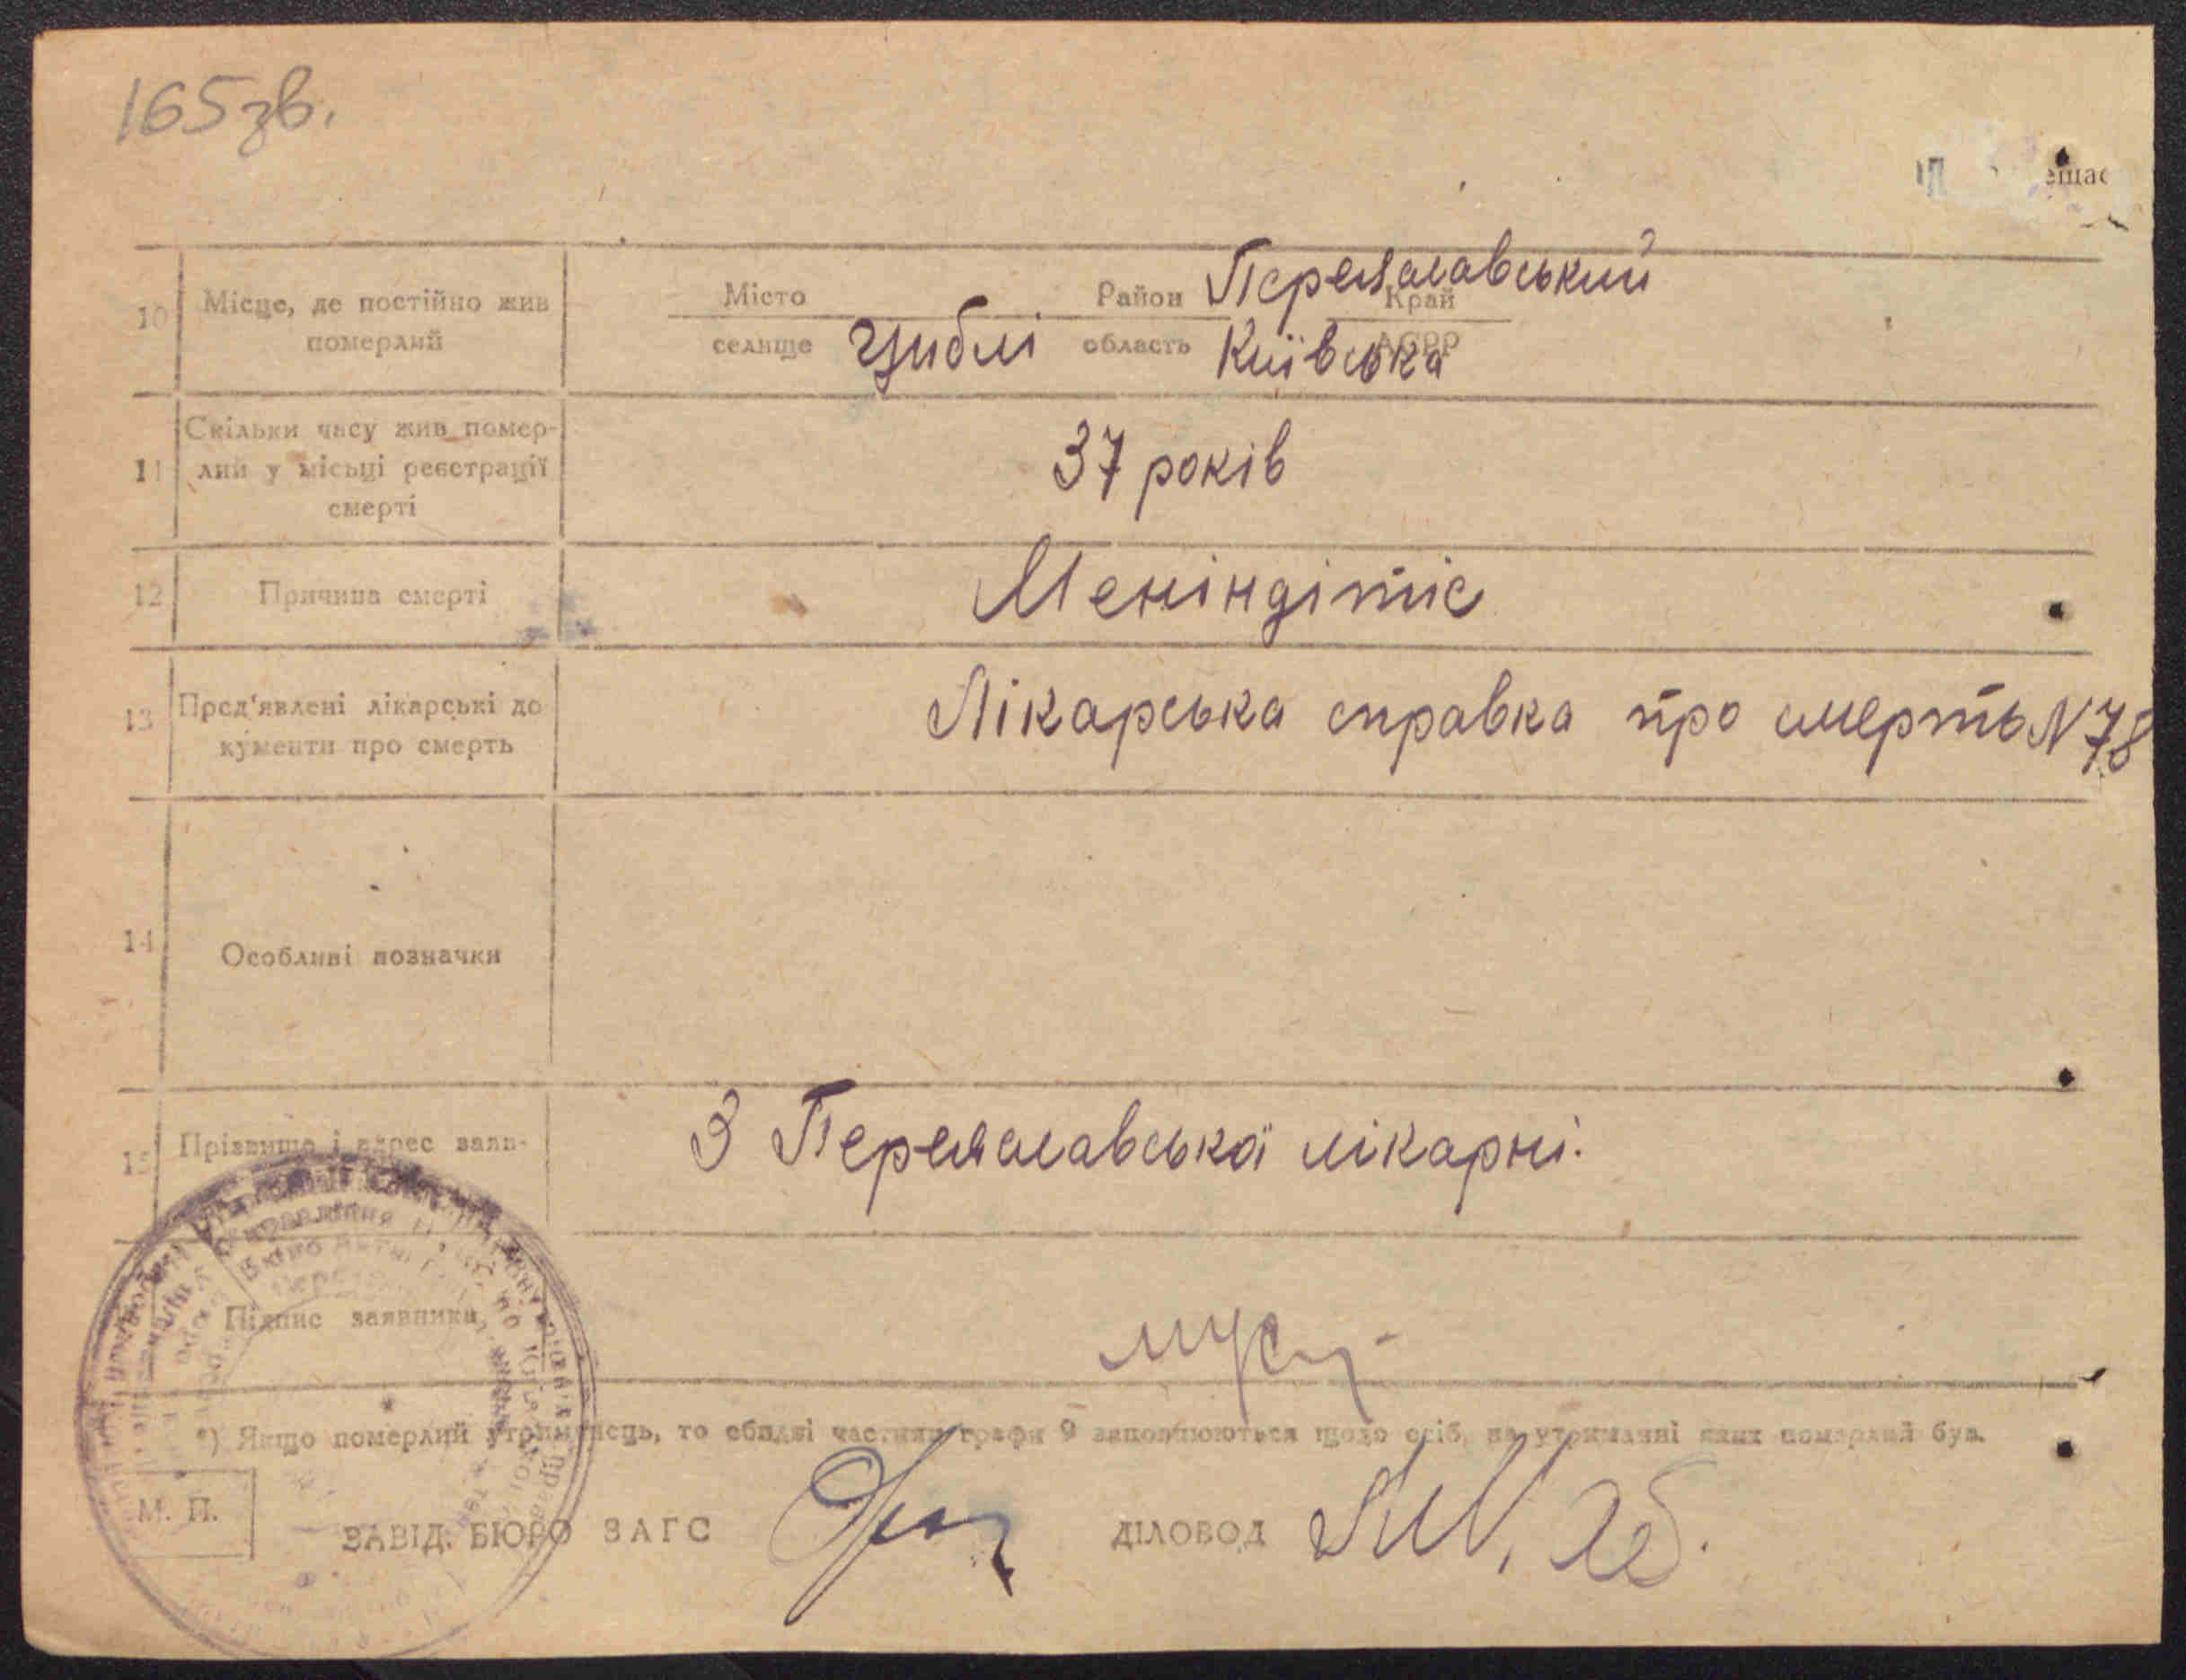 165зв.
10 Місце, де постійно жив померлий
Місто Район Переяславський Край
селище Циблі область Київська АСРР
11 Скільки часу жив помер-
лий у місьці реєстрації
смерті
37 років
12 Причина смерті Менінгітіс
13 Пред'явлені лікарські до
кументи про смерть
Лікарська справка про смерть N 78
14 Особливі позначки
15 Прізвище і адрес заяв-
З Переяславської лікарні.
Підпис заявника
*) Якщо померлий утриманець, то обидві частини графи 9 заповнюються щодо осіб, на утриманні яких померлий був.
М. П.
ЗАВІД. БЮРО ЗАГС ДІЛОВОД